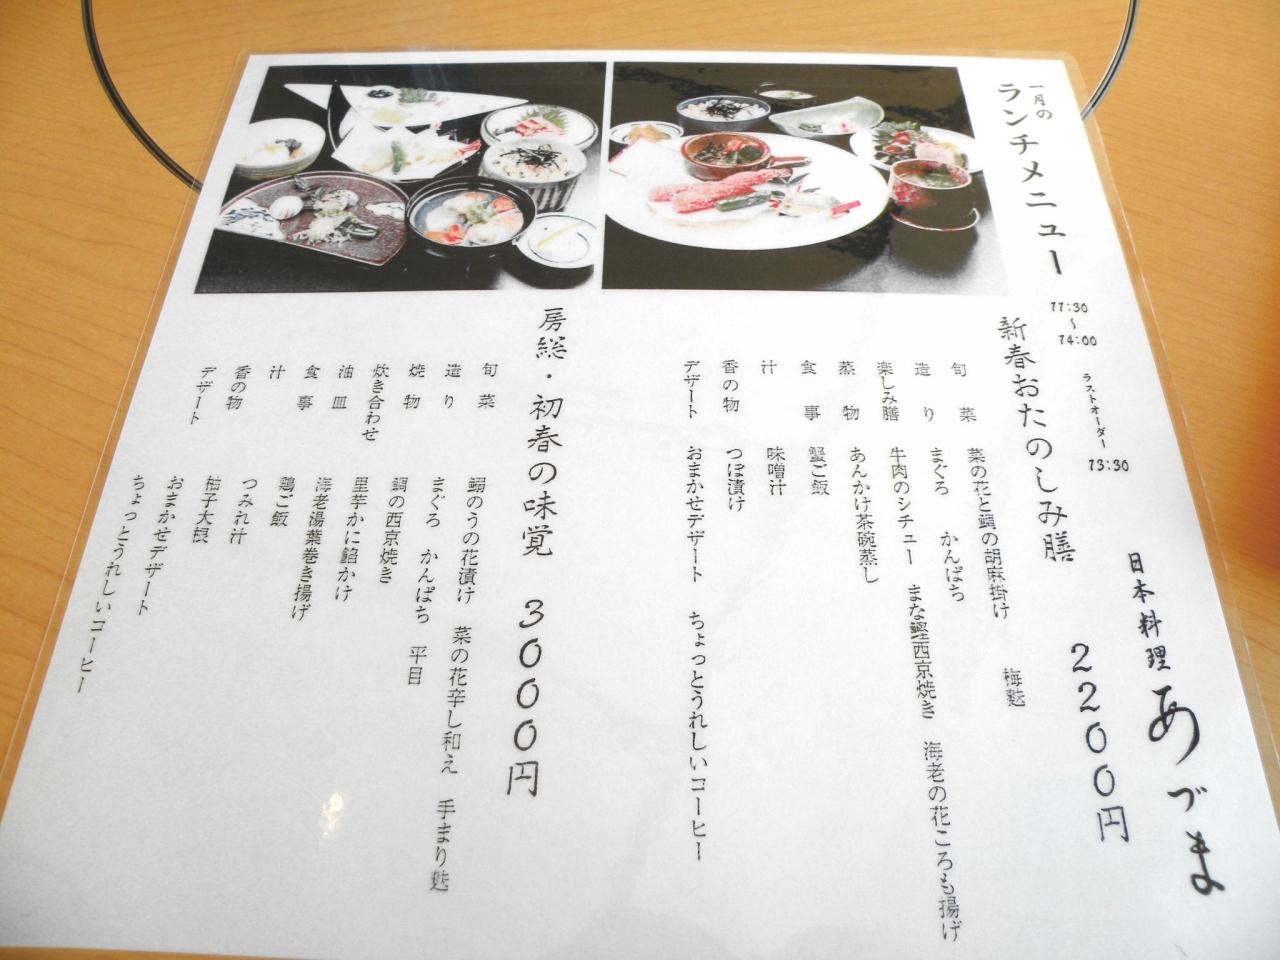 一月の
ランチメニュー
11:30
～
14:00
ラストオーダー
13:30
日本料理 あづま
新春おたのしみ膳 2200円
旬菜 菜の花と鯛の胡麻掛け 梅麩
造り まぐろ かんぱち
楽しみ膳 牛肉のシチュー まな鰹西京焼き 海老の花ころも揚げ
蒸物 あんかけ茶碗蒸し
食事 蟹ご飯
汁 味噌汁
香の物 つぼ漬け
デザート おまかせデザート ちょっとうれしいコーヒー
房総・初春の味覚 3000円
旬菜 鰯のうの花漬け 菜の花辛し和え 手まり麩
造り まぐろ かんぱち 平目
焼物 鯛の西京焼き
炊き合わせ 里芋かに餡かけ
油皿 海老湯葉巻き揚げ
食事 鶏ご飯
汁 つみれ汁
香の物 柚子大根
デザート おまかせデザート
ちょっとうれしいコーヒー